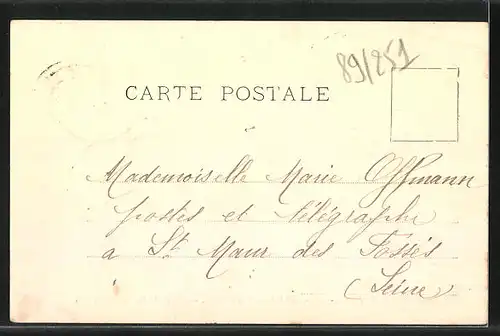 89/251
CARTE POSTALE
Mademoiselle Marie Offmann
postes et télégraphe
a St Maur des Fossés
(Seine)